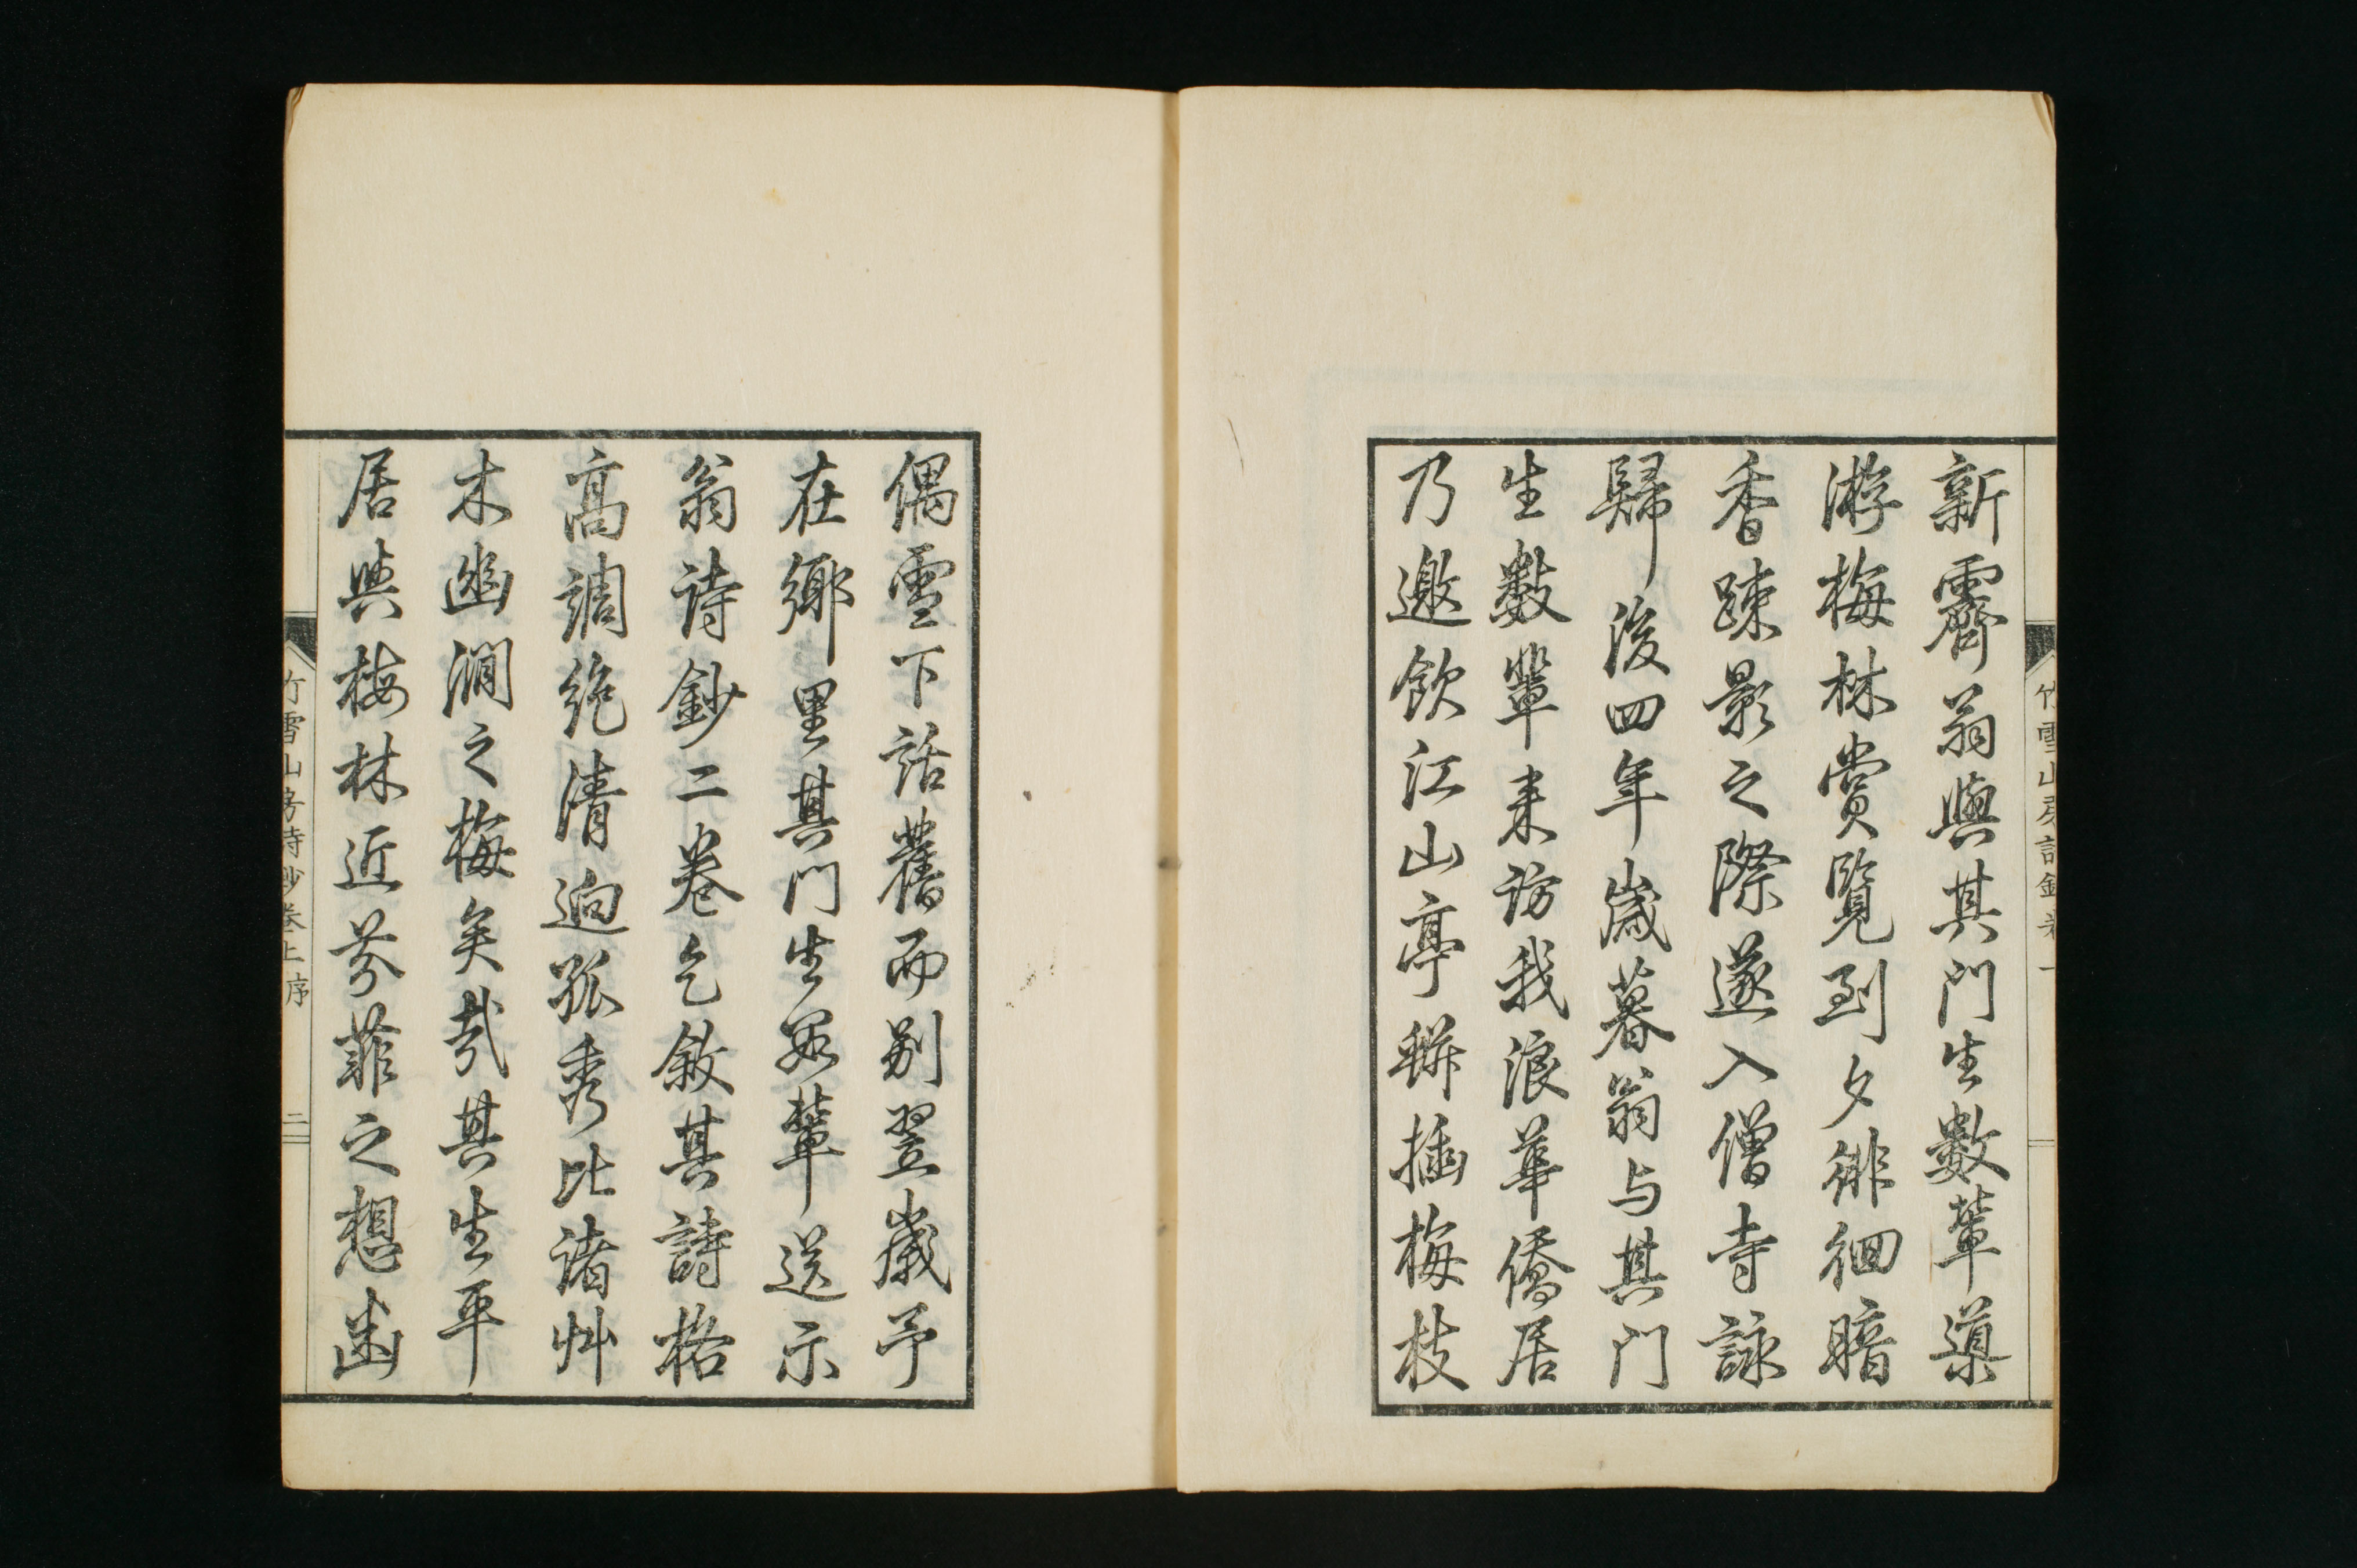 新霽翁與其門生數輩導
游梅林賞覧到夕徘徊暗
香疎影之際遂入僧寺詠
歸後四年歳暮翁与其門
生数輩来訪我浪華僑居
乃邀飲江山亭缾插梅枝
偶雪下話舊而别翌歳予
在鄉里其門生數輩送示
翁詩鈔二卷乞敘其詩格
高調絶清迥孤秀比諸艸
木幽澗之梅矣哉其生平
居與梅林近芬菲之想幽
竹雪山房詩鈔卷上序
二